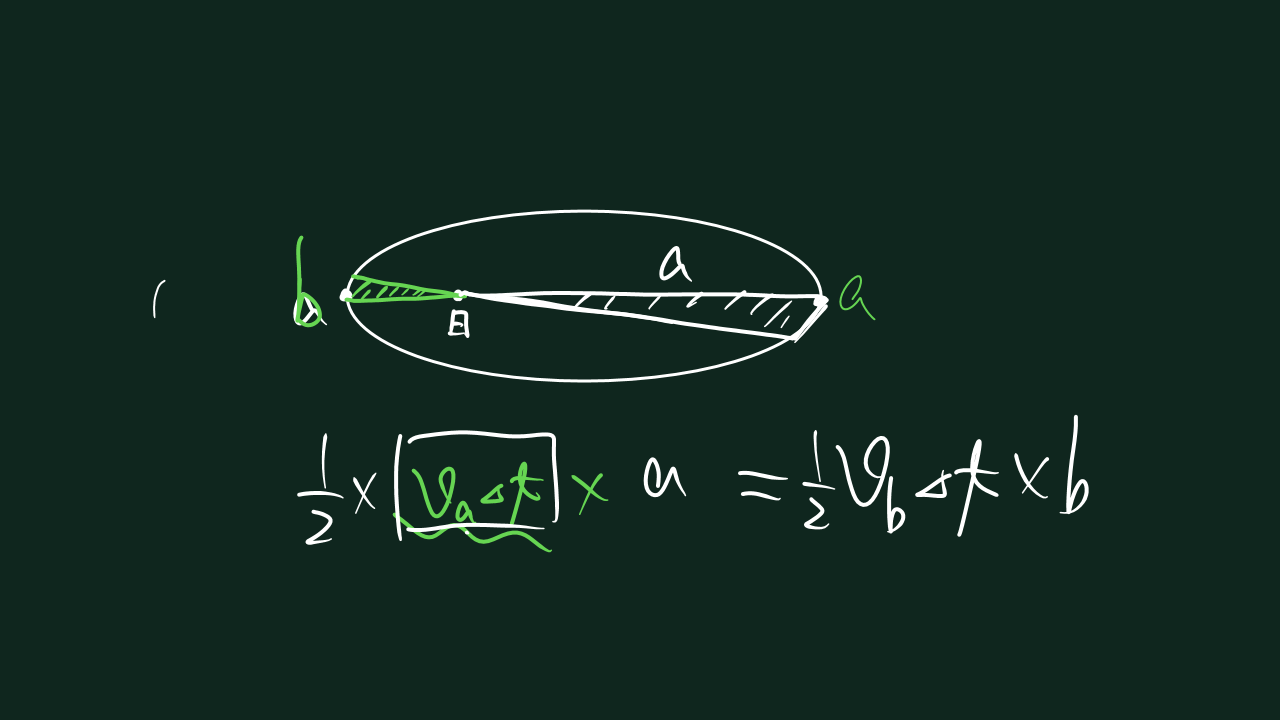 a
b a
日
½ × v_a Δt × a = ½ v_b Δt × b